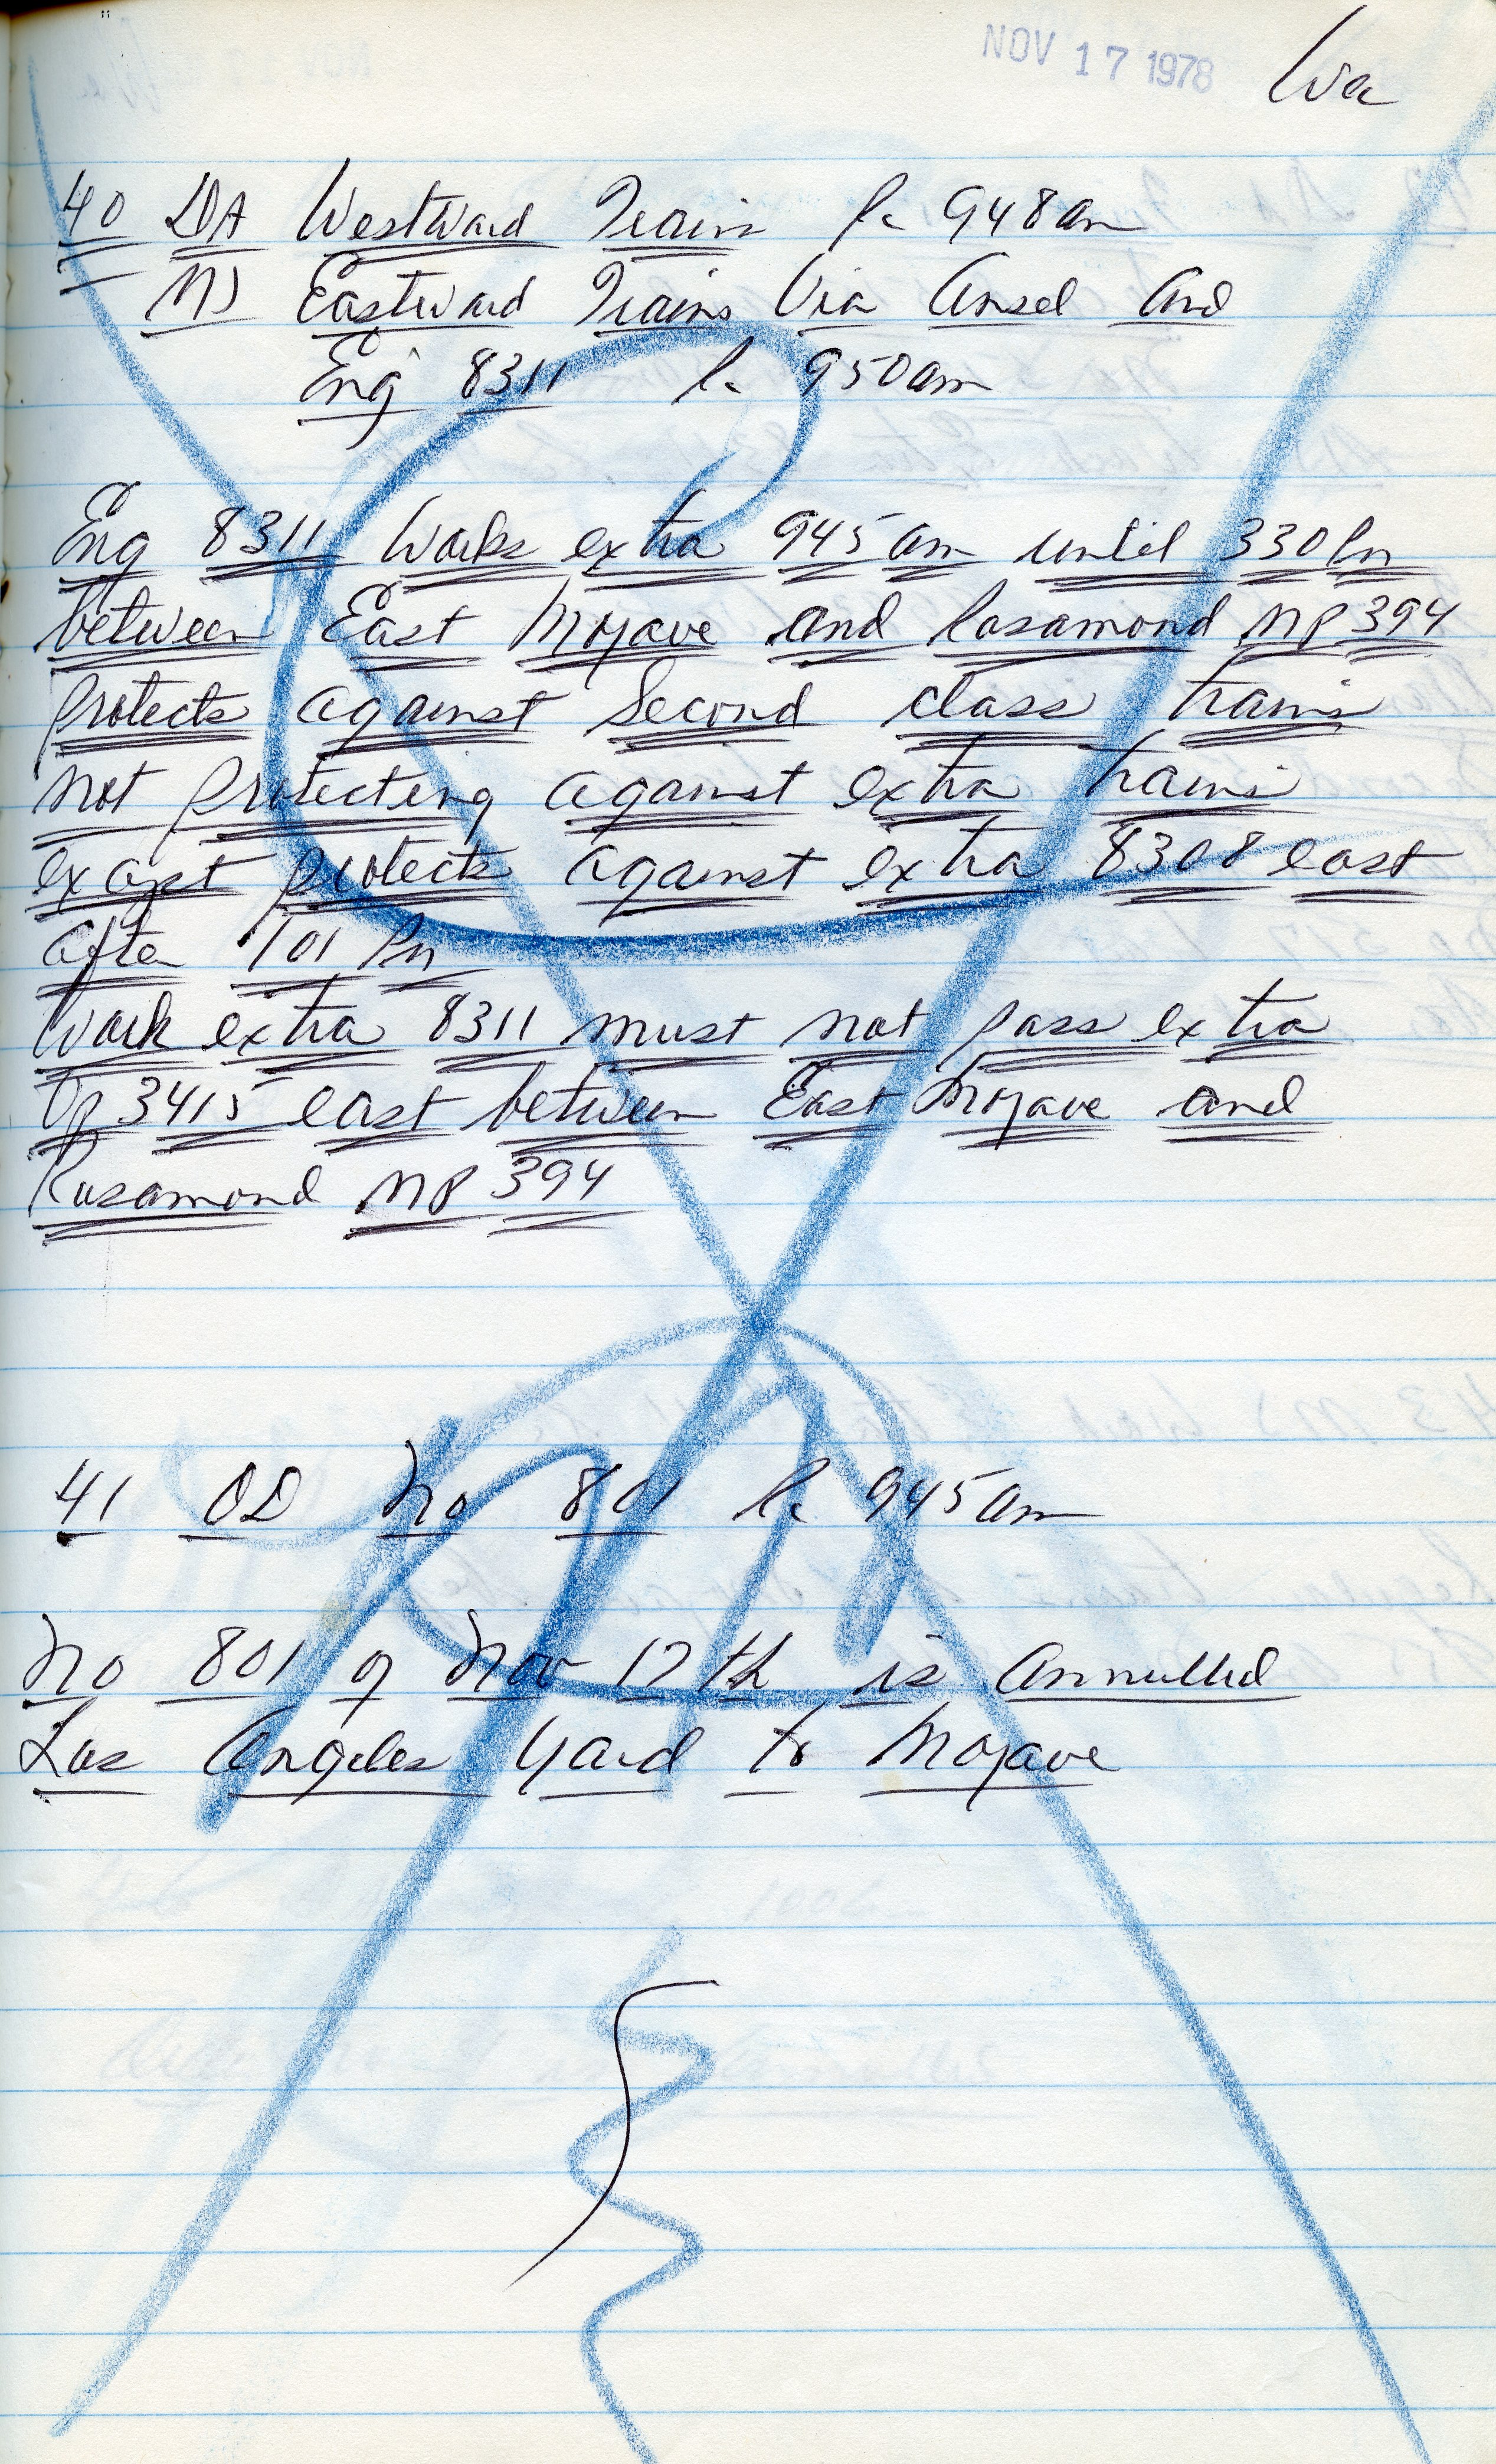 NOV 17 1978
40 DA Westward Trains 948am
MJ Eastward Trains Via Ansel and
Eng 8311 950am
Eng 8311 Works extra 945am until 330Pm
between East Mojave and Rosamond MP 394
Protects against Second class trains
Not protecting against extra trains
except protects against extra 8308 east
after 101 Pm
Work extra 8311 must not pass extra
Up 3415 east between East Mojave and
Rosamond MP 394
41 OD No 801 945am
No 801 of Nov 17th is annulled
Los Angeles Yard to Mojave